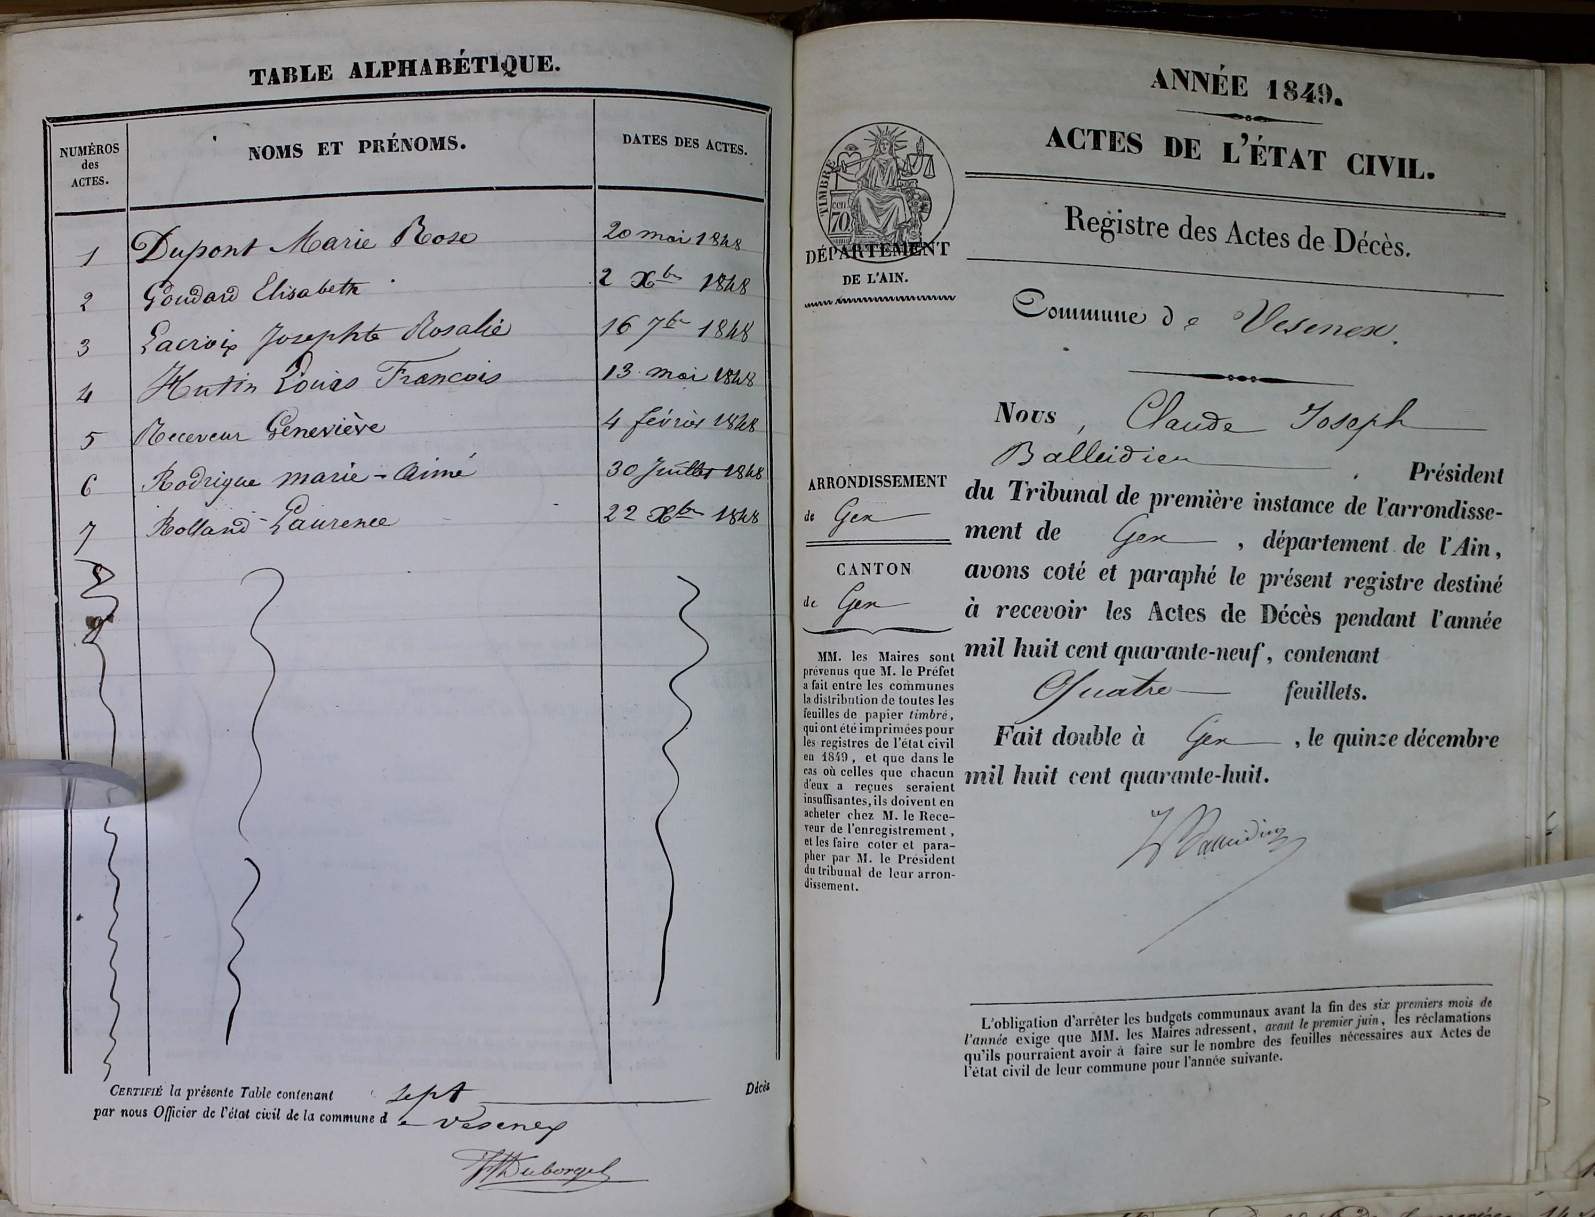 TABLE ALPHABÉTIQUE.
NUMÉROS
des
ACTES.
NOMS ET PRÉNOMS.
DATES DES ACTES.
1 Dupont Marie Rose 20 mai 1848
2 Goudard Elisabeth 2 Xbre 1848
3 Lacroix Josephte Rosalie 16 7bre 1848
4 Hutin Louis François 13 mai 1848
5 Receveur Geneviève 4 février 1848
6 Rodrigue marie - aimé 30 Juillet 1848
7 Rolland Laurence 22 Xbre 1848
CERTIFIÉ la présente Table contenant sept Décès
par nous Officier de l'état civil de la commune de Vesenex
Duborgel
ANNÉE 1849.
ACTES DE L'ÉTAT CIVIL.
TIMBRE
cen
70
DÉPARTEMENT
DE L'AIN.
Registre des Actes de Décès.
Commune de Vesenex.
ARRONDISSEMENT
de Gex
CANTON
de Gex
MM. les Maires sont
prévenus que M. le Préfet
a fait entre les communes
la distribution de toutes les
feuilles de papier timbré,
qui ont été imprimées pour
les registres de l'état civil
en 1849, et que dans le
cas où celles que chacun
d'eux a reçues seraient
insuffisantes, ils doivent en
acheter chez M. le Rece-
veur de l'enregistrement,
et les faire coter et para-
pher par M. le Président
du tribunal de leur arron-
dissement.
Nous, Claude Joseph
Balleidier Président
du Tribunal de première instance de l'arrondisse-
ment de Gex, département de l'Ain,
avons coté et paraphé le présent registre destiné
à recevoir les Actes de Décès pendant l'année
mil huit cent quarante-neuf, contenant
Quatre feuillets.
Fait double à Gex, le quinze décembre
mil huit cent quarante-huit.
Balleidier
L'obligation d'arrêter les budgets communaux avant la fin des six premiers mois de
l'année exige que MM. les Maires adressent, avant le premier juin, les réclamations
qu'ils pourraient avoir à faire sur le nombre des feuilles nécessaires aux Actes de
l'état civil de leur commune pour l'année suivante.